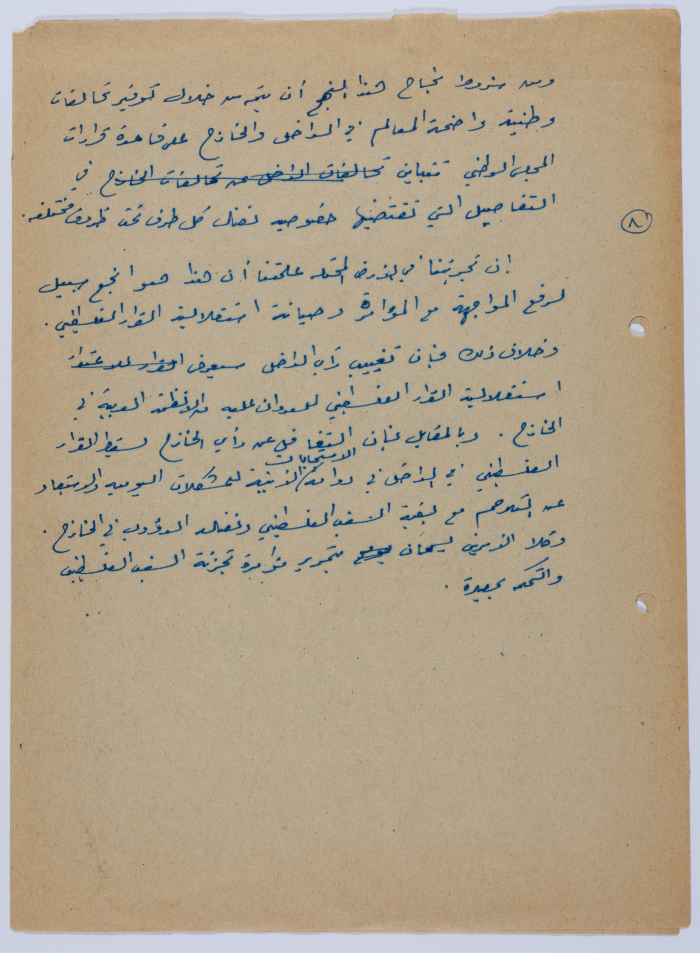 ومن شروط نجاح هذا النهج أن يتم من خلال توفير تحالفات
وطنية واضحة المعالم في الداخل والخارج على قاعدة قرارات
المجلس الوطني تتباين تحالفات الداخل عن تحالفات الخارج في
التفاصيل التي تقتضيها خصوصية نضال كل طرف تحت ظروف مختلفة.
٨
إن تجربتنا في الأرض المحتلة علمتنا أن هذا هو أنجع سبيل
لرفع المواجهة مع المؤامرة وصيانة استقلالية القرار الفلسطيني.
وخلاف ذلك فإن تغييب رأي الداخل سيعرض
استقلالية القرار الفلسطيني للعدوان عليه من الأنظمة العربية في
الخارج. وبالمقابل فإن التغافل عن رأي الخارج يسقط القرار
الفلسطيني في الداخل في دوامة الاستجابات الآنية للمشكلات اليومية والابتعاد
عن التلاحم مع بقية الشعب الفلسطيني ونضاله الدؤوب في الخارج.
وكلا الأمرين يسهمان بتمرير مؤامرة تجزئة الشعب الفلسطيني
والتحكم بمصيره.